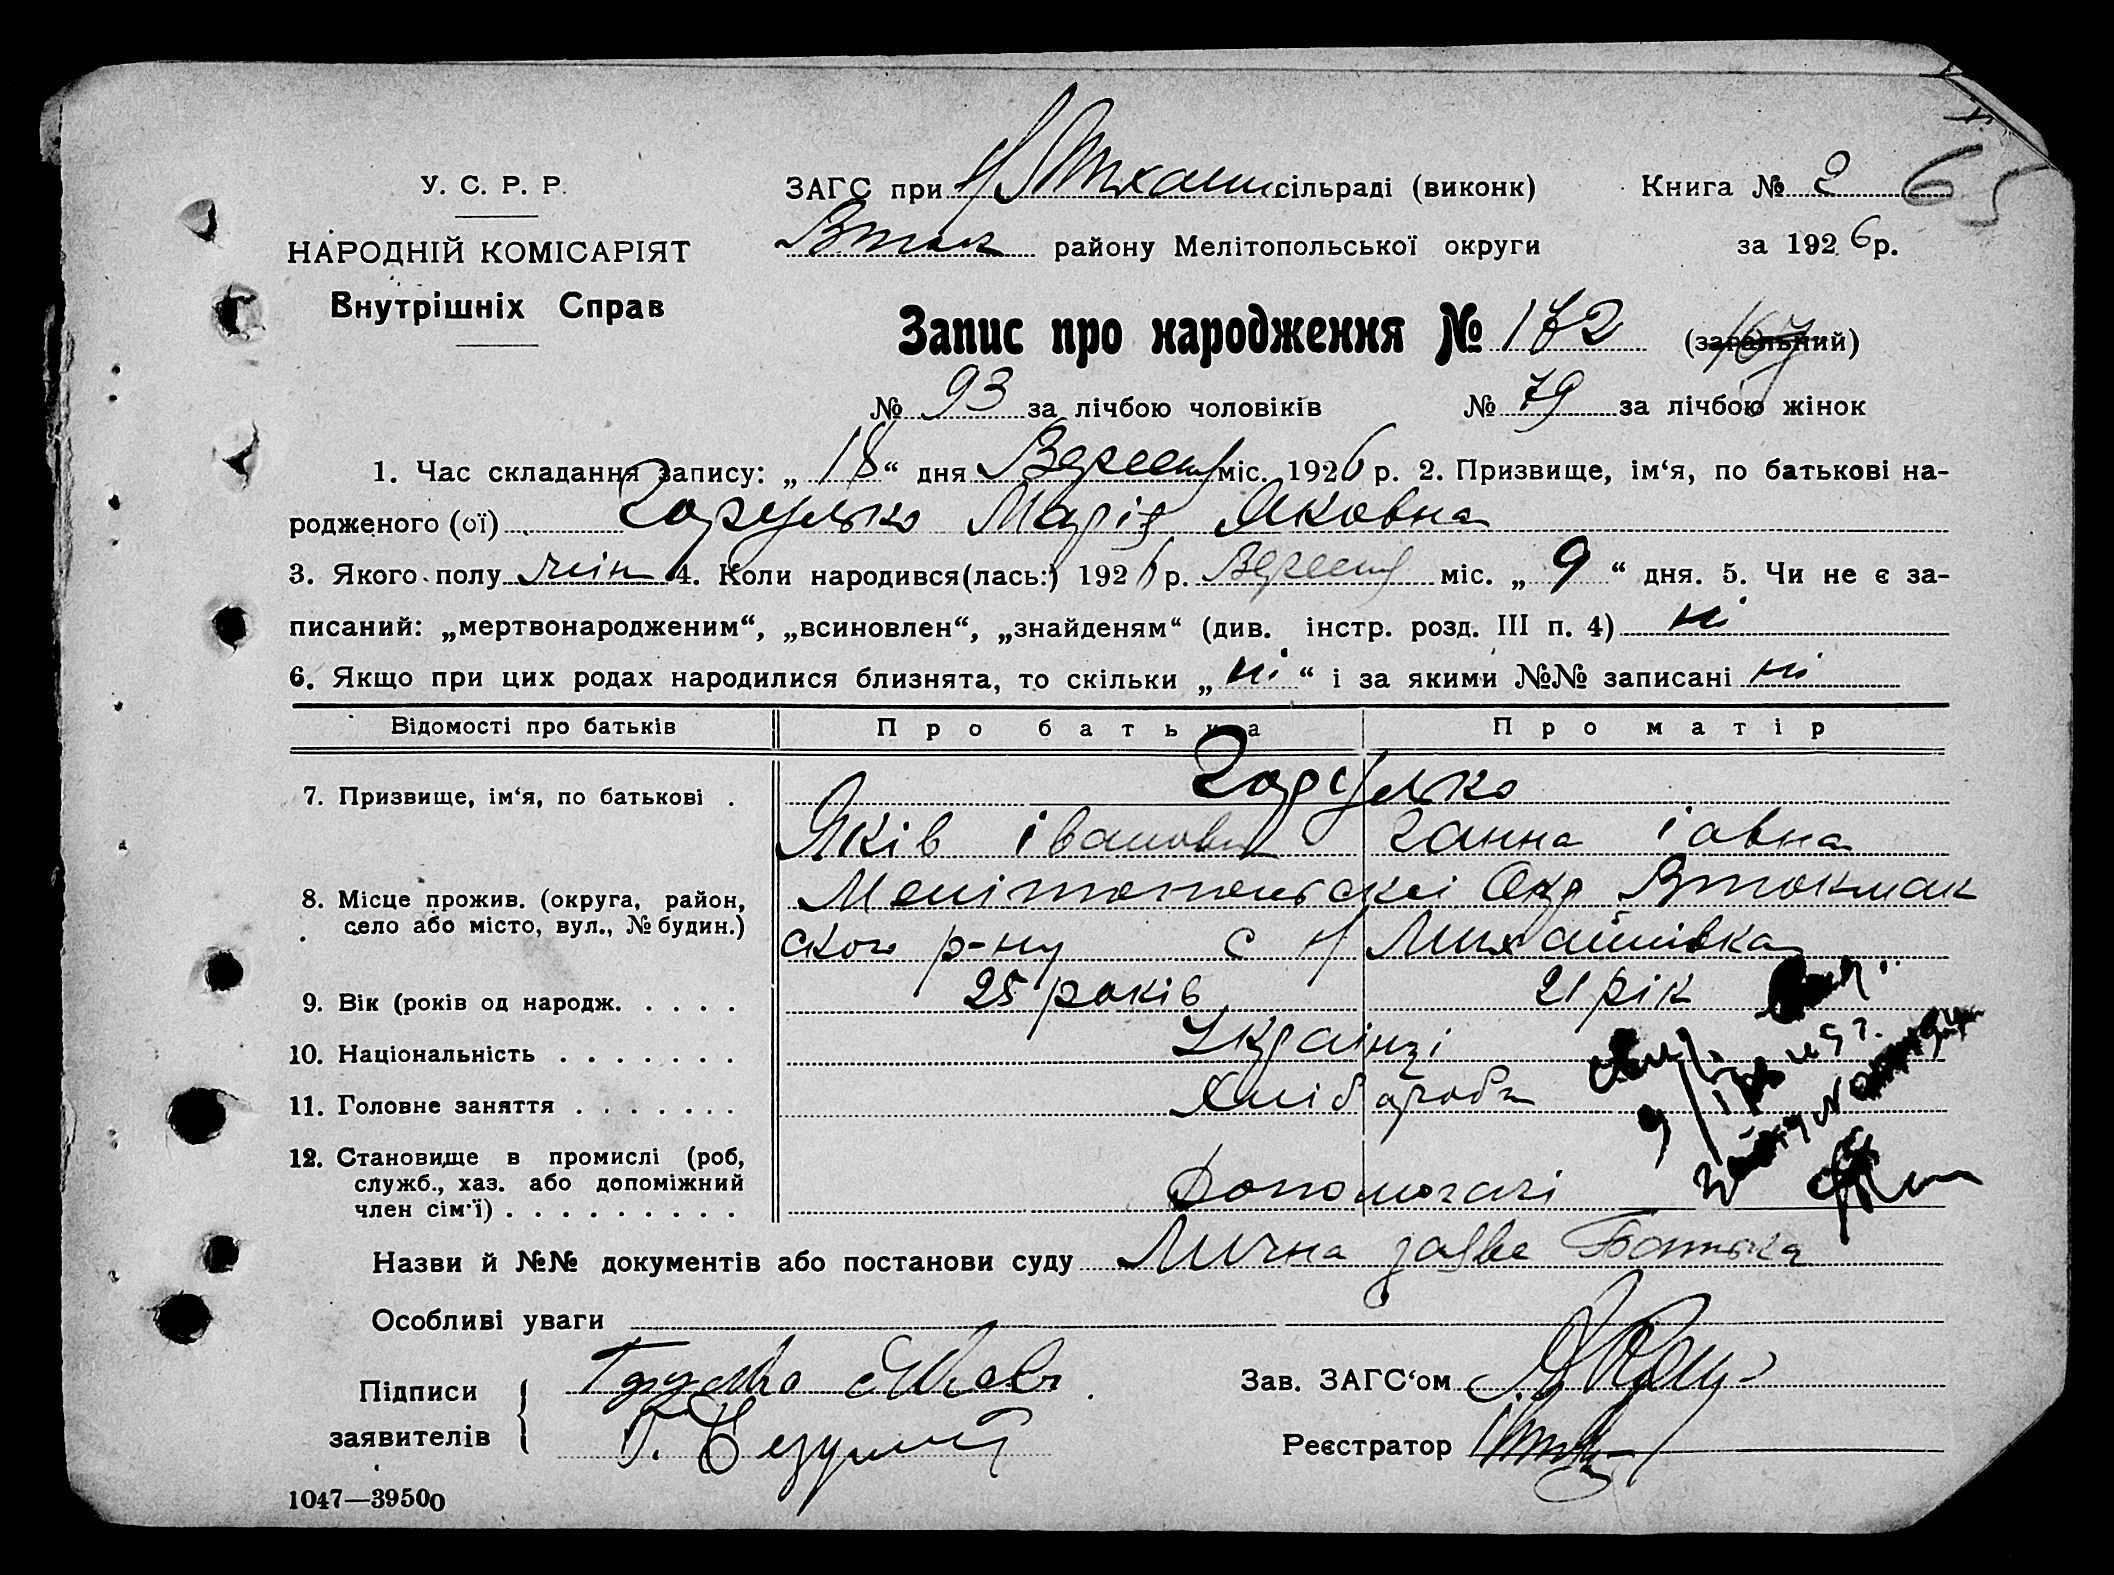 65
У. С. Р. Р.
НАРОДНІЙ КОМІСАРІЯТ
Внутрішніх Справ
ЗАГС при Н Михайл сільраді (виконк)
Вток району Мелітопольської округи
Книга № 2
за 1926 р.
Запис про народження № 172 (загальний) 167
№ 93 за лічбою чоловіків № 79 за лічбою жінок
1. Час складання запису: „ 18 “ дня Вересня міс. 1926 р. 2. Призвище, ім‘я, по батькові на-
родженого (ої) Марія Яковна
3. Якого полу жін 4. Коли народився(лась:) 1926 р. Вересня міс. „ 9 “ дня. 5. Чи не є за-
писаний: „мертвонародженим“, „всиновлен“, „знайденям“ (див. інстр. розд. III п. 4) ні
6. Якщо при цих родах народилися близнята, то скільки „ ні “ і за якими №№ записані ні
Відомості про батьків Про батька Про матір
7. Призвище, ім‘я, по батькові .
Яків Іванович Ганна
8. Місце прожив. (округа, район, Мелітопольскої Окр Втокмак
село або місто, вул., № будин.) ского р-ну с Н Михайлівка
9. Вік (років од народж. . . . . 25 років 21 рік
10. Національність . . . . . . . Українці
11. Головне заняття . . . . . . . Хлібороби
12. Становище в промислі (роб,
служб., хаз. або допоміжний Допомогачі
член сім‘ї) . . . . . . . . .
Назви й №№ документів або постанови суду Лична заява Батька
Особливі уваги
Підписи
заявителів
Зав. ЗАГС‘ом
Реєстратор
1047—39500